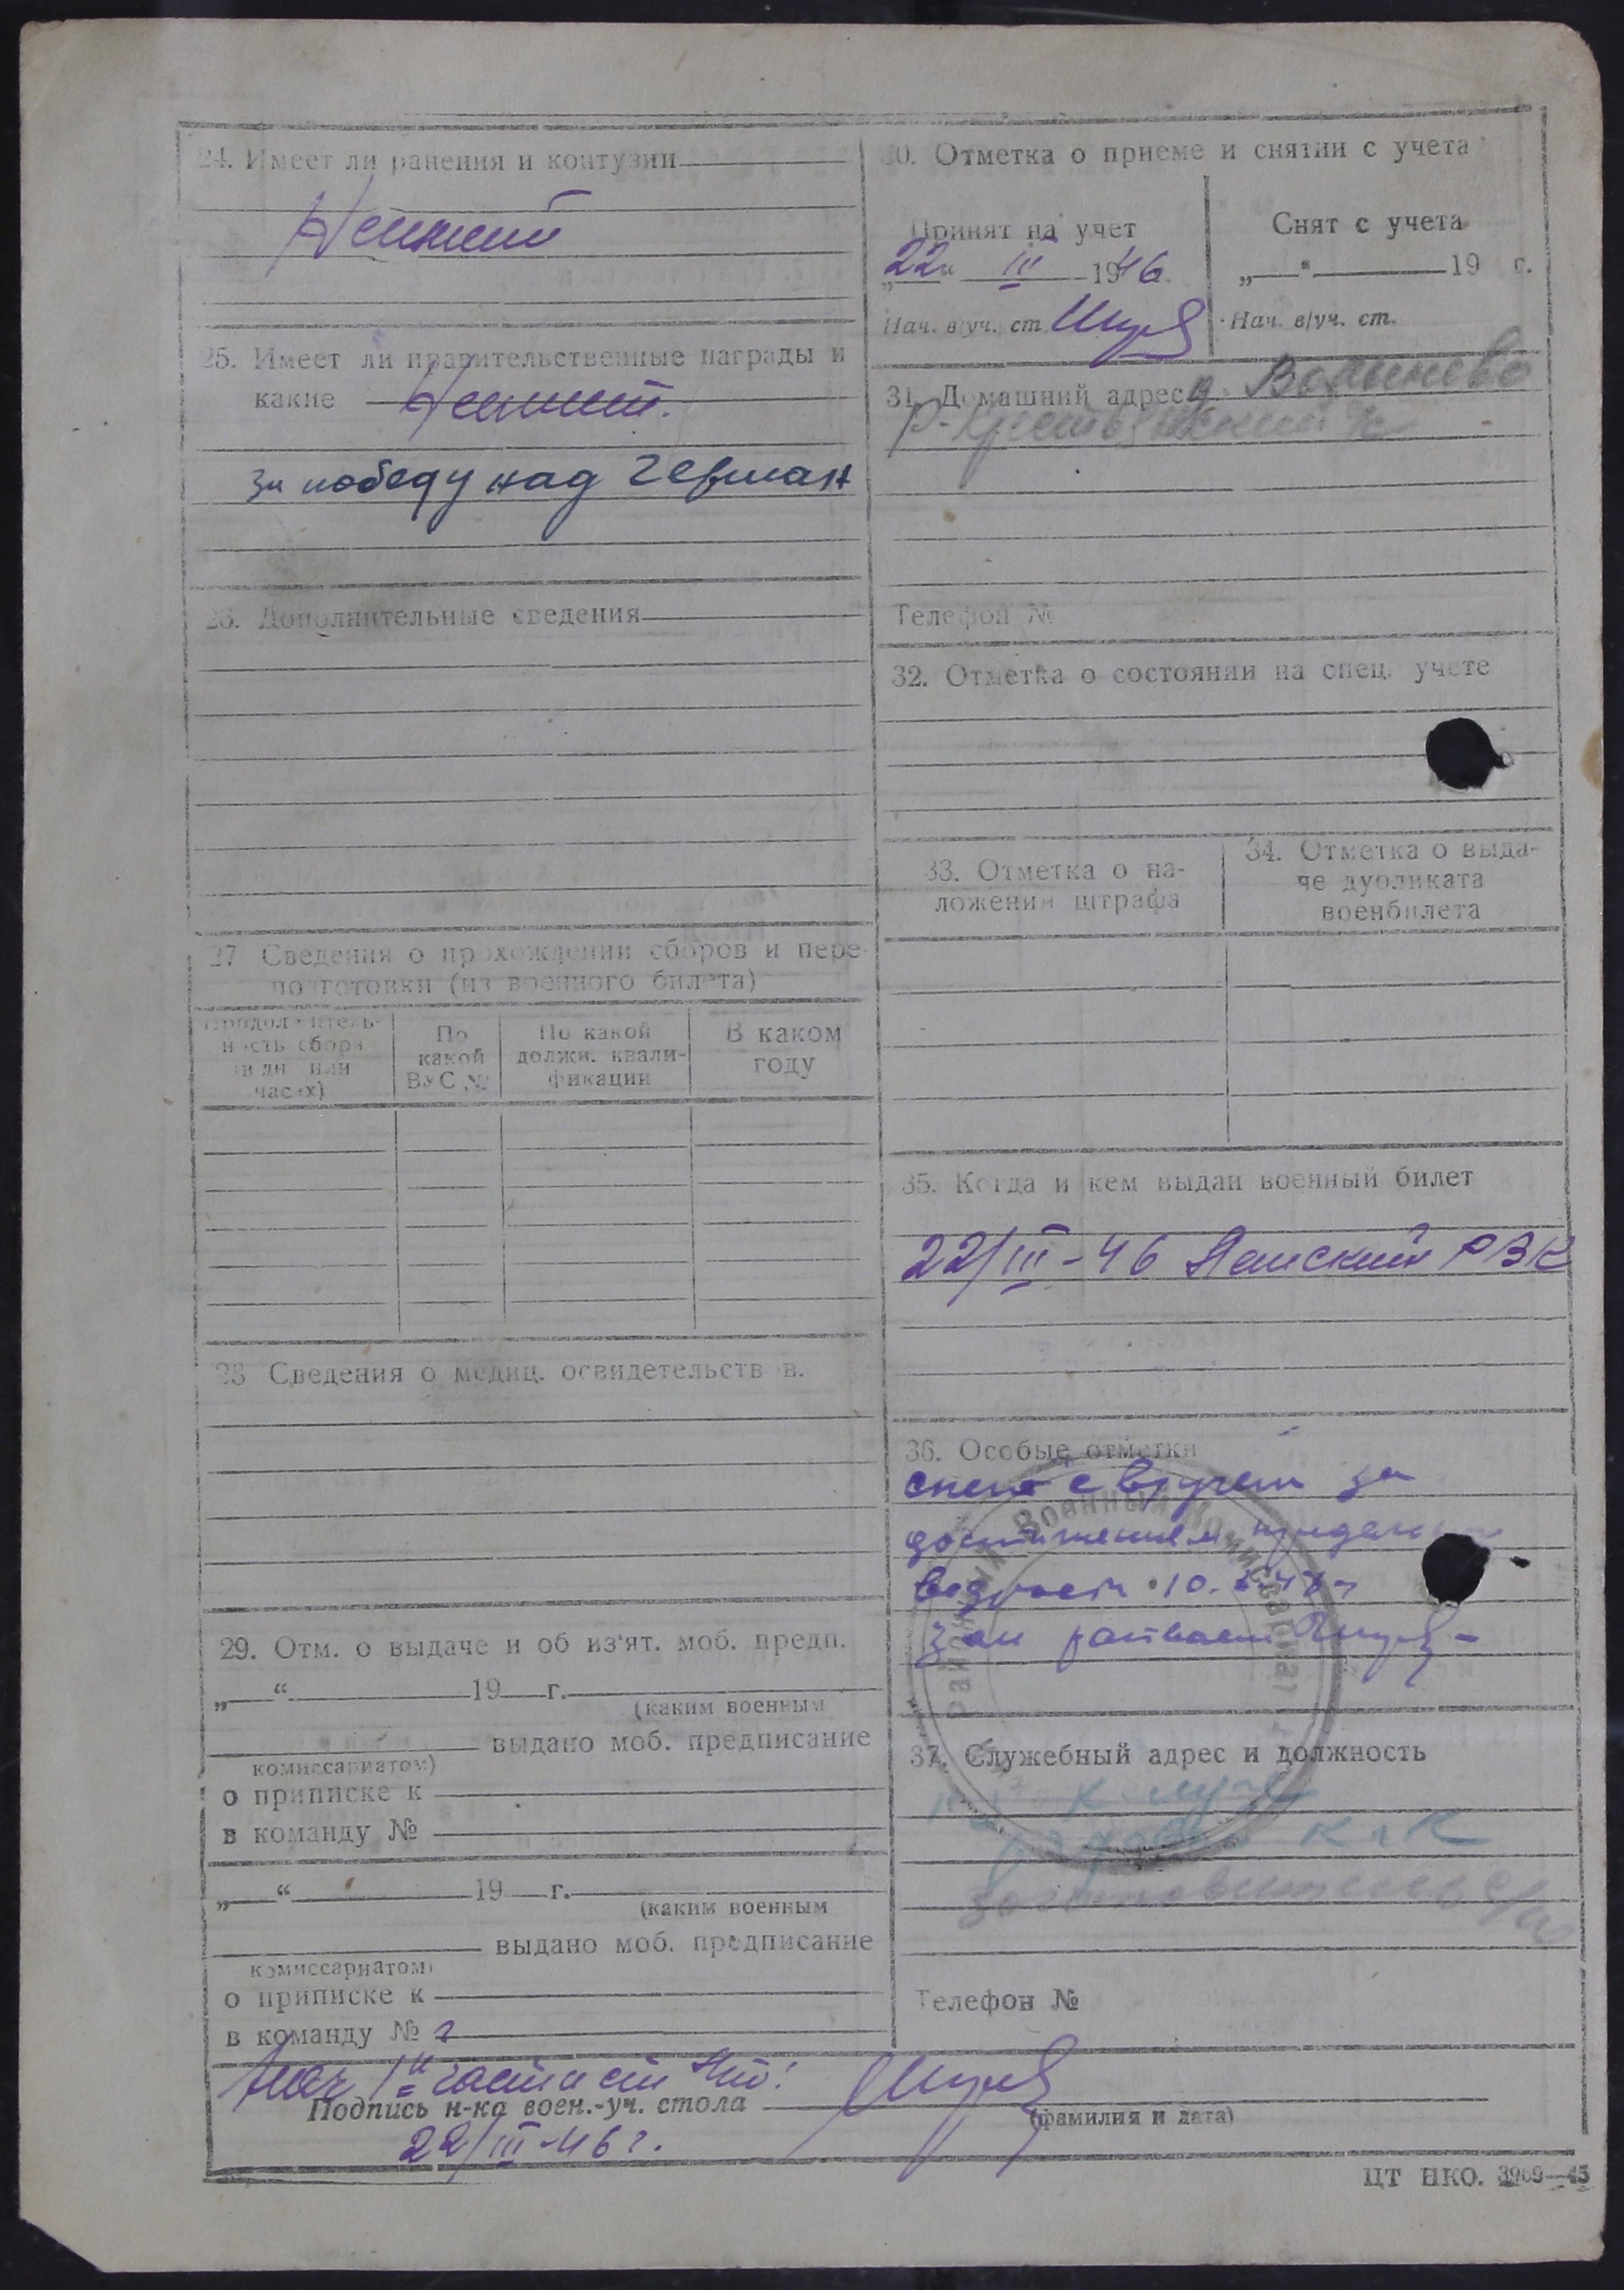 24. Имеет ли ранения и контузии
Не имеет
25. Имеет ли правительственные награды и
какие Не имеет.
За победу над Герман
26. Дополнительные сведения
27 Сведения о прохождении сборов и пере-
подготовки (из военного билета)
Продолжитель-
ность сбора
(в дн. или
часах)
По
какой
ВУС №
По какой
должн. квали-
фикации
В каком
году
28 Сведения о медиц. освидетельствов.
29. Отм. о выдаче и об из'ят. моб. предп.
„ “ 19 г.
(каким военным
выдано моб. предписание
комиссариатом)
о приписке к
в команду №
„ “ 19 г.
(каким военным
выдано моб. предписание
комиссариатом)
о приписке к
в команду №
30. Отметка о приеме и снятии с учета
Принят на учет
„22“ III 1946
Нач. в/уч. ст.
Снят с учета
„ “ 19 г.
Нач. в/уч. ст.
31. Домашний адрес д.
Р-
Телефон №
32. Отметка о состоянии на спец. учете
33. Отметка о на-
ложении штрафа
34. Отметка о выда-
че дубликата
военбилета
35. Когда и кем выдан военный билет
22/III-46 РВК
36. Особые отметки
снят с в/учета за
достижением предельн
возраст 10.
Районный Военный Комиссариат
37. Служебный адрес и должность
к-к
Телефон №
Нач 1й части ст
Подпись н-ка воен.-уч. стола
(фамилия и дата)
22/III-46 г.
ЦТ НКО. 3909—45